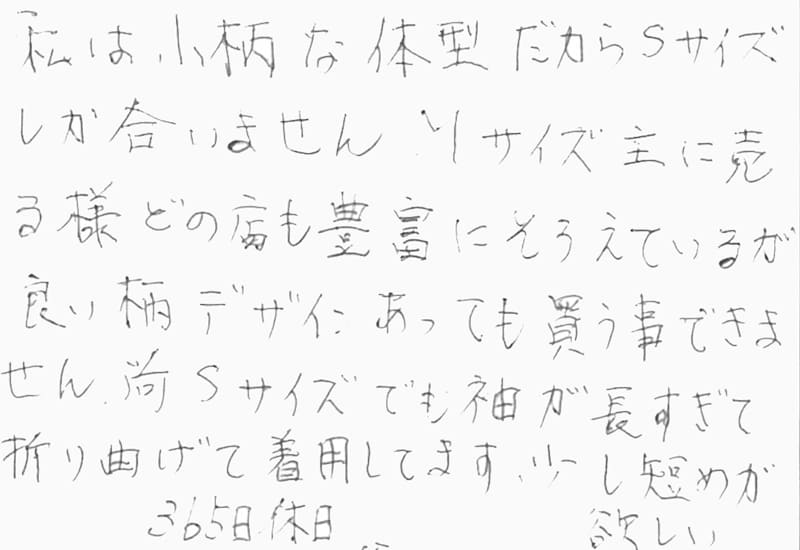 私は小柄な体型だからSサイズ
しか合いません。Mサイズ主に売
る様どの店も豊富にそろえているが
良い柄デザインあっても買う事できま
せん。尚Sサイズでも袖が長すぎて
折り曲げて着用してます。少し短めが
365日休日 欲しい